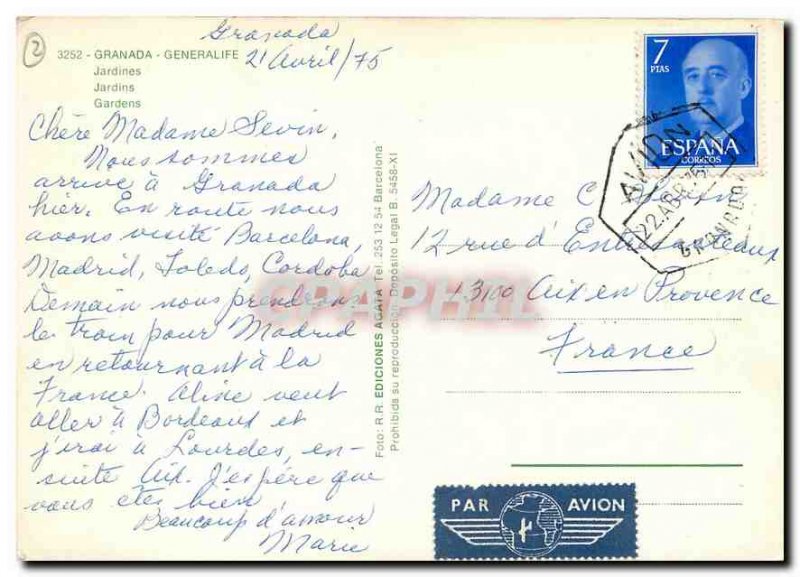 2
Granada
21 Avril/75
3252 - GRANADA - GENERALIFE
Jardines
Jardins
Gardens
Chère Madame Sevin,
Nous sommes
arrivé à Granada
hier. En route nous
avons visité Barcelona,
Madrid, Toledo, Cordoba
Demain nous prendrons
le train pour Madrid
en retournant à la
France. Aline veut
aller à Bordeaux et
j'irai à Lourdes, en-
suite Aix. J'espère que
vous etes bien
Beaucoup d'amour
Marie
Foto: R.R. EDICIONES AGATA Tel. 253 12 54 Barcelona
Prohibida su reproducción. Depósito Legal B. 5458-XI
7
PTAS
ESPAÑA
CORREOS
AVION
22 ABR 75
GRANADA
Madame C.
12 rue d'
13100 Aix en Provence
France
DELCAMPHIL
PAR AVION